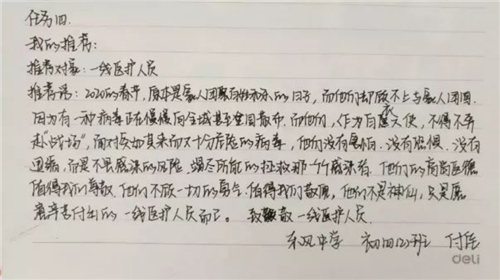 任务四.
我的推荐:
推荐对象:一线医护人员
推荐语:2020的春节,原本是家人团聚的日子,而他们却顾不上与家人团圆.
因为有一种病毒正在慢慢向全城甚至全国散布.而他们,作为白衣天使,不得不奔
赴“战场”,面对突如其来而又十分危险的病毒,他们没有畏惧.没有退缩.没有
逃避.而是不畏感染的风险,竭尽所能的拯救那一个个感染者.他们的高尚医德
值得我们尊敬.他们不顾一切的勇气.值得我们敬佩,他们不是神仙,只是愿
意辛苦付出的一线医护人员而已。致敬一线医护人员.
东风中学 初四(2)班 付佳
deli